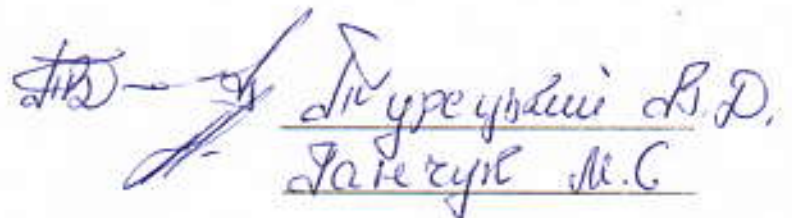 Турецький В.Д.
Ганчук М.С